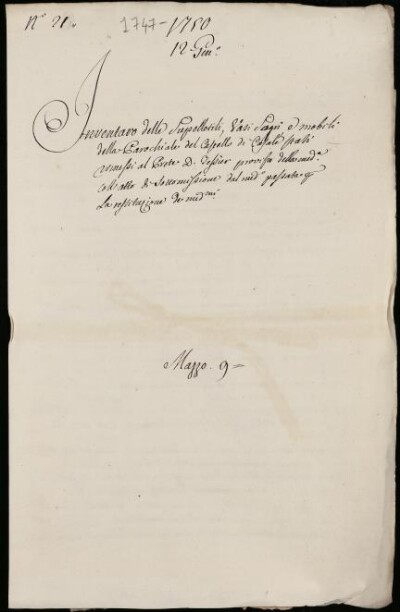 N° 21.
1747-1750
12 Gen.°
Inventaro delle Suppellettili, Vasi Sagri e mobili
della Parochiale del Castello di Casale stati
rimessi al Prete D. Tessier provisto della med.a
coll'atto di Sottomissione del med.° passata p
la restituzione de med.mi
Mazzo. 9=